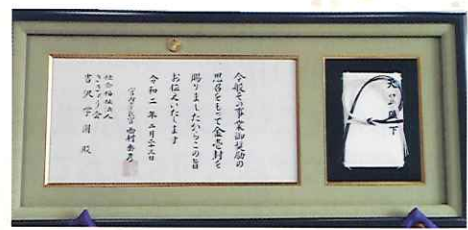 天皇陛下
今般その事業御奨励の
思召をもって金壱封を
賜りましたからこの旨
お伝えいたします
令和二年二月二十三日
宮内庁長官 西村泰彦
社会福祉法人
会
沢学園 殿